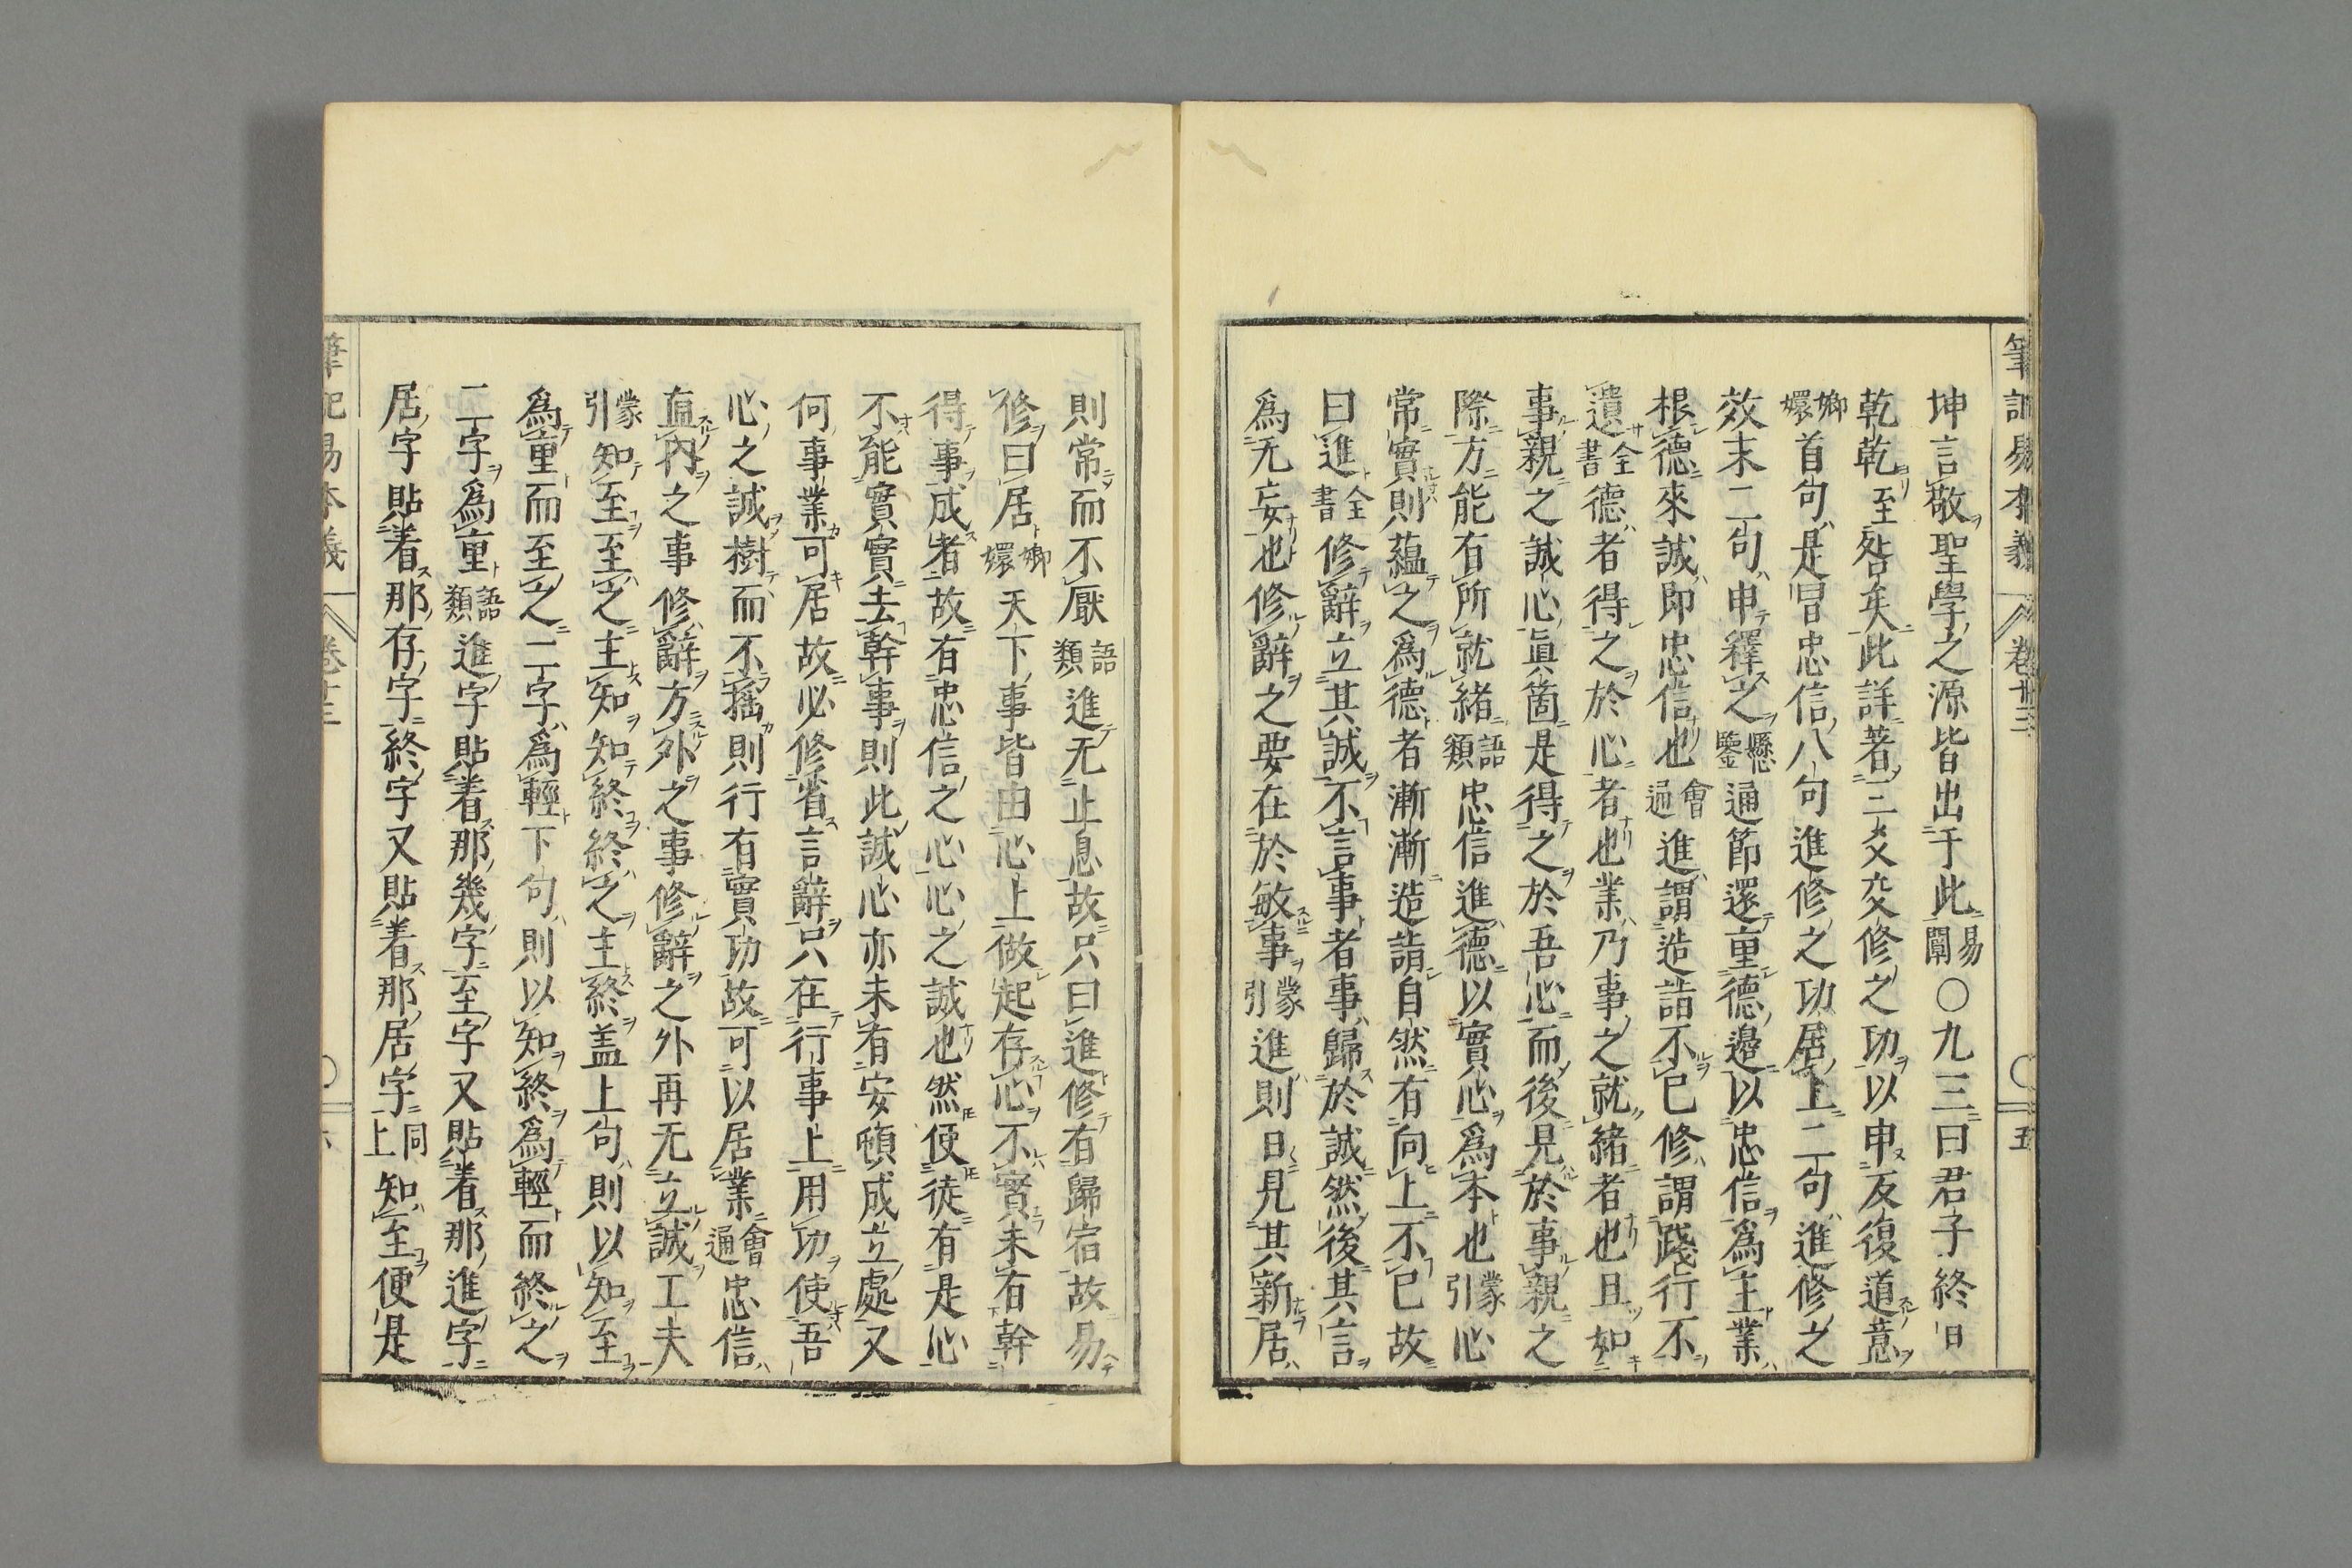 筆記易本義 卷廿三 五
坤言敬聖學之源皆出于此易闡〇九三曰君子終日
乾乾至咎矣此詳著三爻交修之功以申反復道意
嫏嬛首句是冒忠信八句進修之功居上二句進修之
效末二句申釋之懸鑒通節還重德邊以忠信爲主業
根德來誠即忠信也會通進謂造詣不已修謂踐行不
遺全書德者得之於心者也業乃事之就緒者也且如
事親之誠心眞箇是得之於吾心而後見於事親之
際方能有所就緒語類忠信進德以實心爲本也蒙引心
常實則蘊之爲德者漸漸造詣自然有向上不已故
曰進全書修辭立其誠不言事者事歸於誠然後其言
爲无妄也修辭之要在於敏事蒙引進則日見其新居
則常而不厭語類進无止息故只曰進修有歸宿故易
修曰居嫏嬛天下事皆由心上做起存心不實未有幹
得事成者故有忠信之心心之誠也然便徒有是心
不能實實去幹事則此誠心亦未有安頓成立處又
何事業可居故必修省言辭只在行事上用功使吾
心之誠樹而不搖則行有實功故可以居業會通忠信
直內之事修辭方外之事修辭之外再无立誠工夫
蒙引知至至之主知知終終之主終盖上句則以知至
爲重而至之二字爲輕下句則以知終爲輕而終之
二字爲重語類進字貼着那幾字至字又貼着那進字
居字貼着那存字終字又貼着那居字同上知至便是
筆記易本義 卷廿三